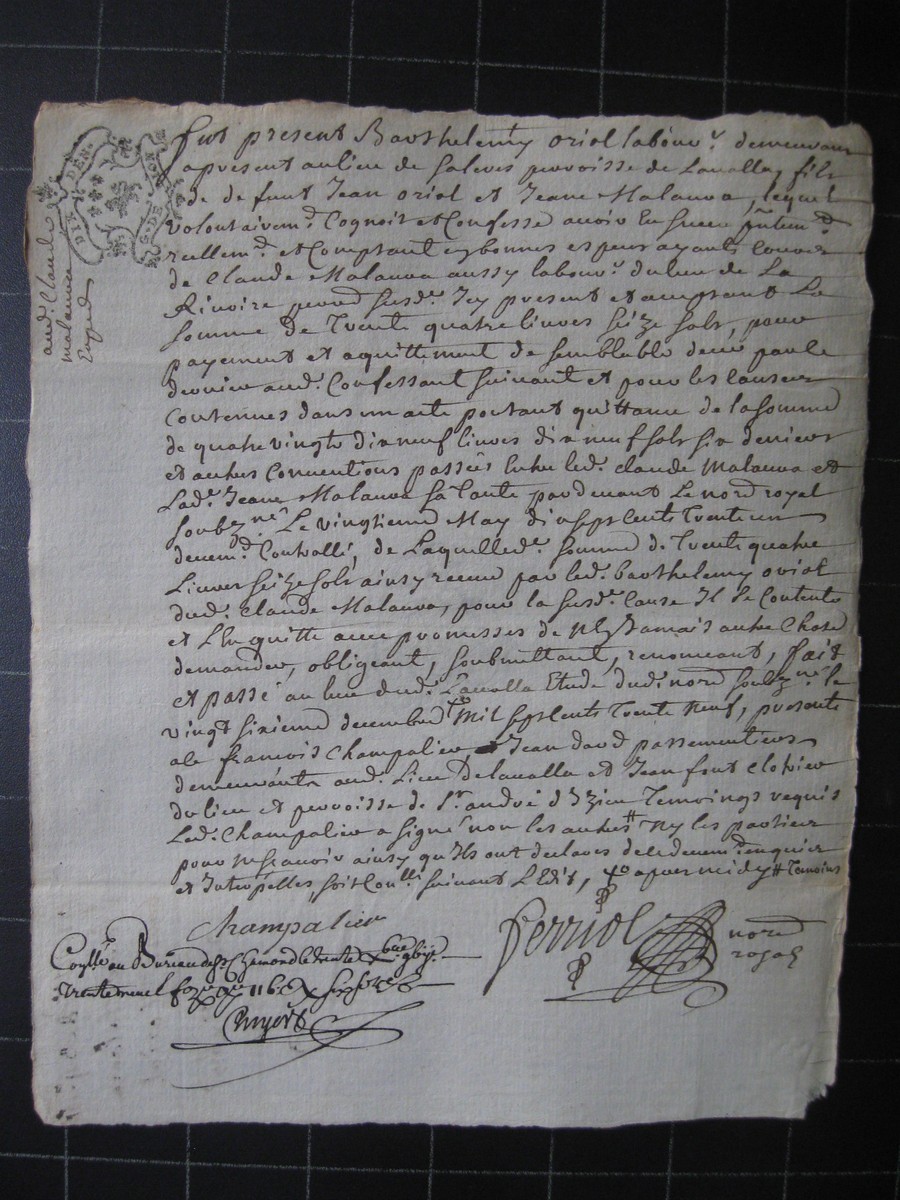 DIX DEN
S. DE
aud. Claude
malauva
Exped
fut present Barthelemy oriol labour.r demeurant
apresent au lieu de Saleves parroisse de Lavalla, fils
de defunt Jean oriol et Jeane Malauva, lequel
volontairem.t Cognoit et Confesse avoir En suen pntem.t
reellem.t et Comptant ey bonnes especes ayants Cours
de Claude Malauva aussy labour.r du lieu de La
Rivoire parrd susd.e Icy present et aceptant La
somme de Trente quatre livres seize sols, pour
payement et aquittement de semblable deue par le
dernier aud. Confessant suivant et pour les causes
Contenues dans un acte portant quittance de la somme
de quatre vingts dix neuf livres dix neuf sols six deniers
et autres Conventions passées Entre led. Claude Malauva et
Lad.e Jeane Malauva sa Tante pardevant Le nord royal
soubz.né Le vingtieme May dix sept cents Trente un
deuem.t Controllé, de Laquelle d.e somme de Trente quatre
Livres seize sols ainsy receue par led. barthelemy oriol
dud. Claude Malauva, pour la susd.e Cause Il se Contente
et L'En quitte avec promesses de n'Ey Jamais autre Chose
demander, obligeant, soubmettant, renonceant, fait
et passé au lieu dud. Lavalla Etude dud. nord soubz.né le
vingt sixieme decembre Mil sept cents trente neuf, presents
a ce francois Champalier Jean davd passementiers
demeurants aud. Lieu De lavalla et Jean font Clotier
du lieu et parroisse de S.t andré d'Izieu Temoings requis
Led. Champalier a signé non les autres # ny les parties
pour ne scavoir ainsy qu'ils ont declarés de ce deuem.t enquier
et Interpellés, soit Con.llé suivant L'Edit, apres midy # Temoins
Champalier
ferriol
nord
royal
Con.llé au Bureau de S.t Chamond le trente
Trente neuf